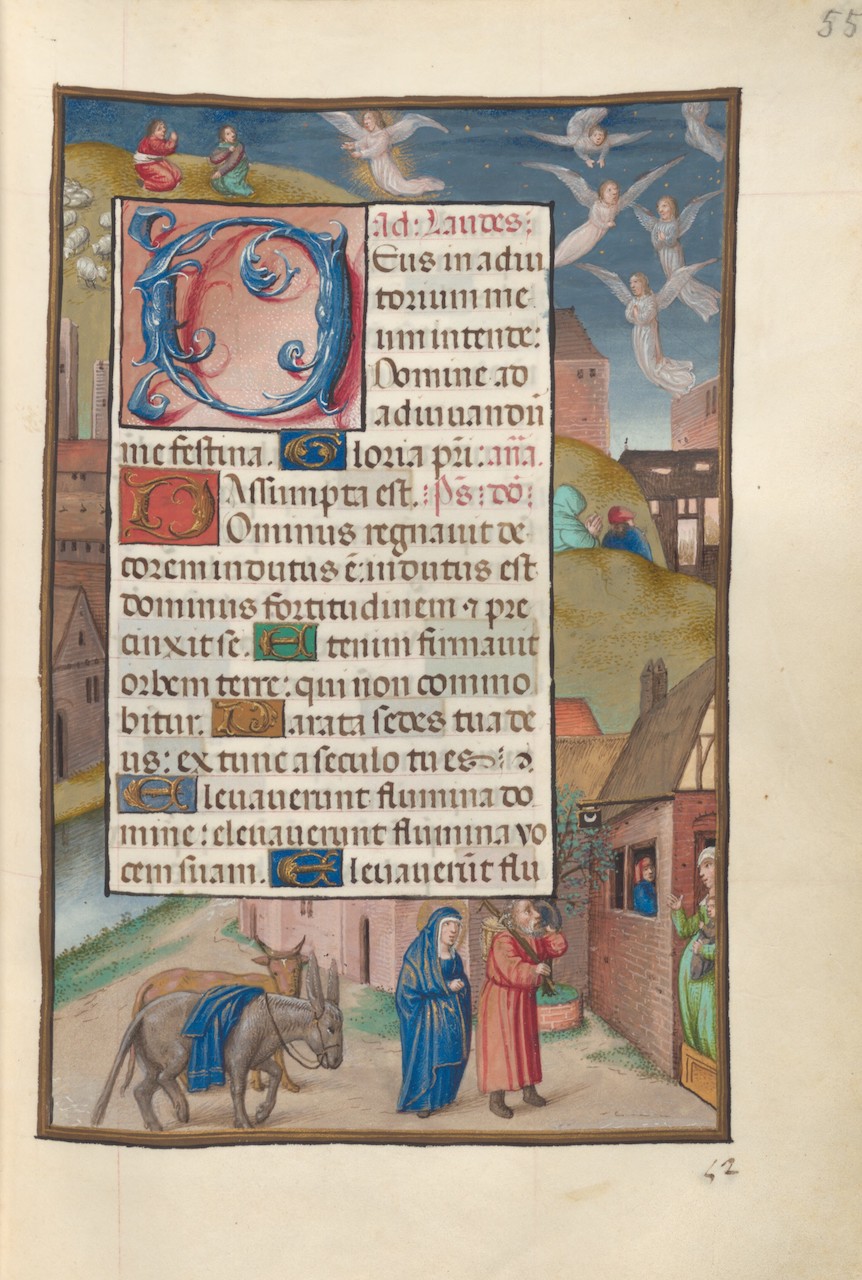 55
ad: Laudes:
DEus in adiu
torium me
um intende:
Domine ad
adiuuandū
me festina. Gloria pri: aña.
Assumpta est. Ps: do:
DOminus regnauit de
corem indutus ē: indutus est
dominus fortitudinem ⁊ pre
cinxit se. Etenim firmauit
orbem terre: qui non commo
bitur. Parata sedes tua de
us: ex tunc a seculo tu es
Eleuauerunt flumina do
mine: eleuauerunt flumina vo
cem suam. Eleuauerūt flu
52